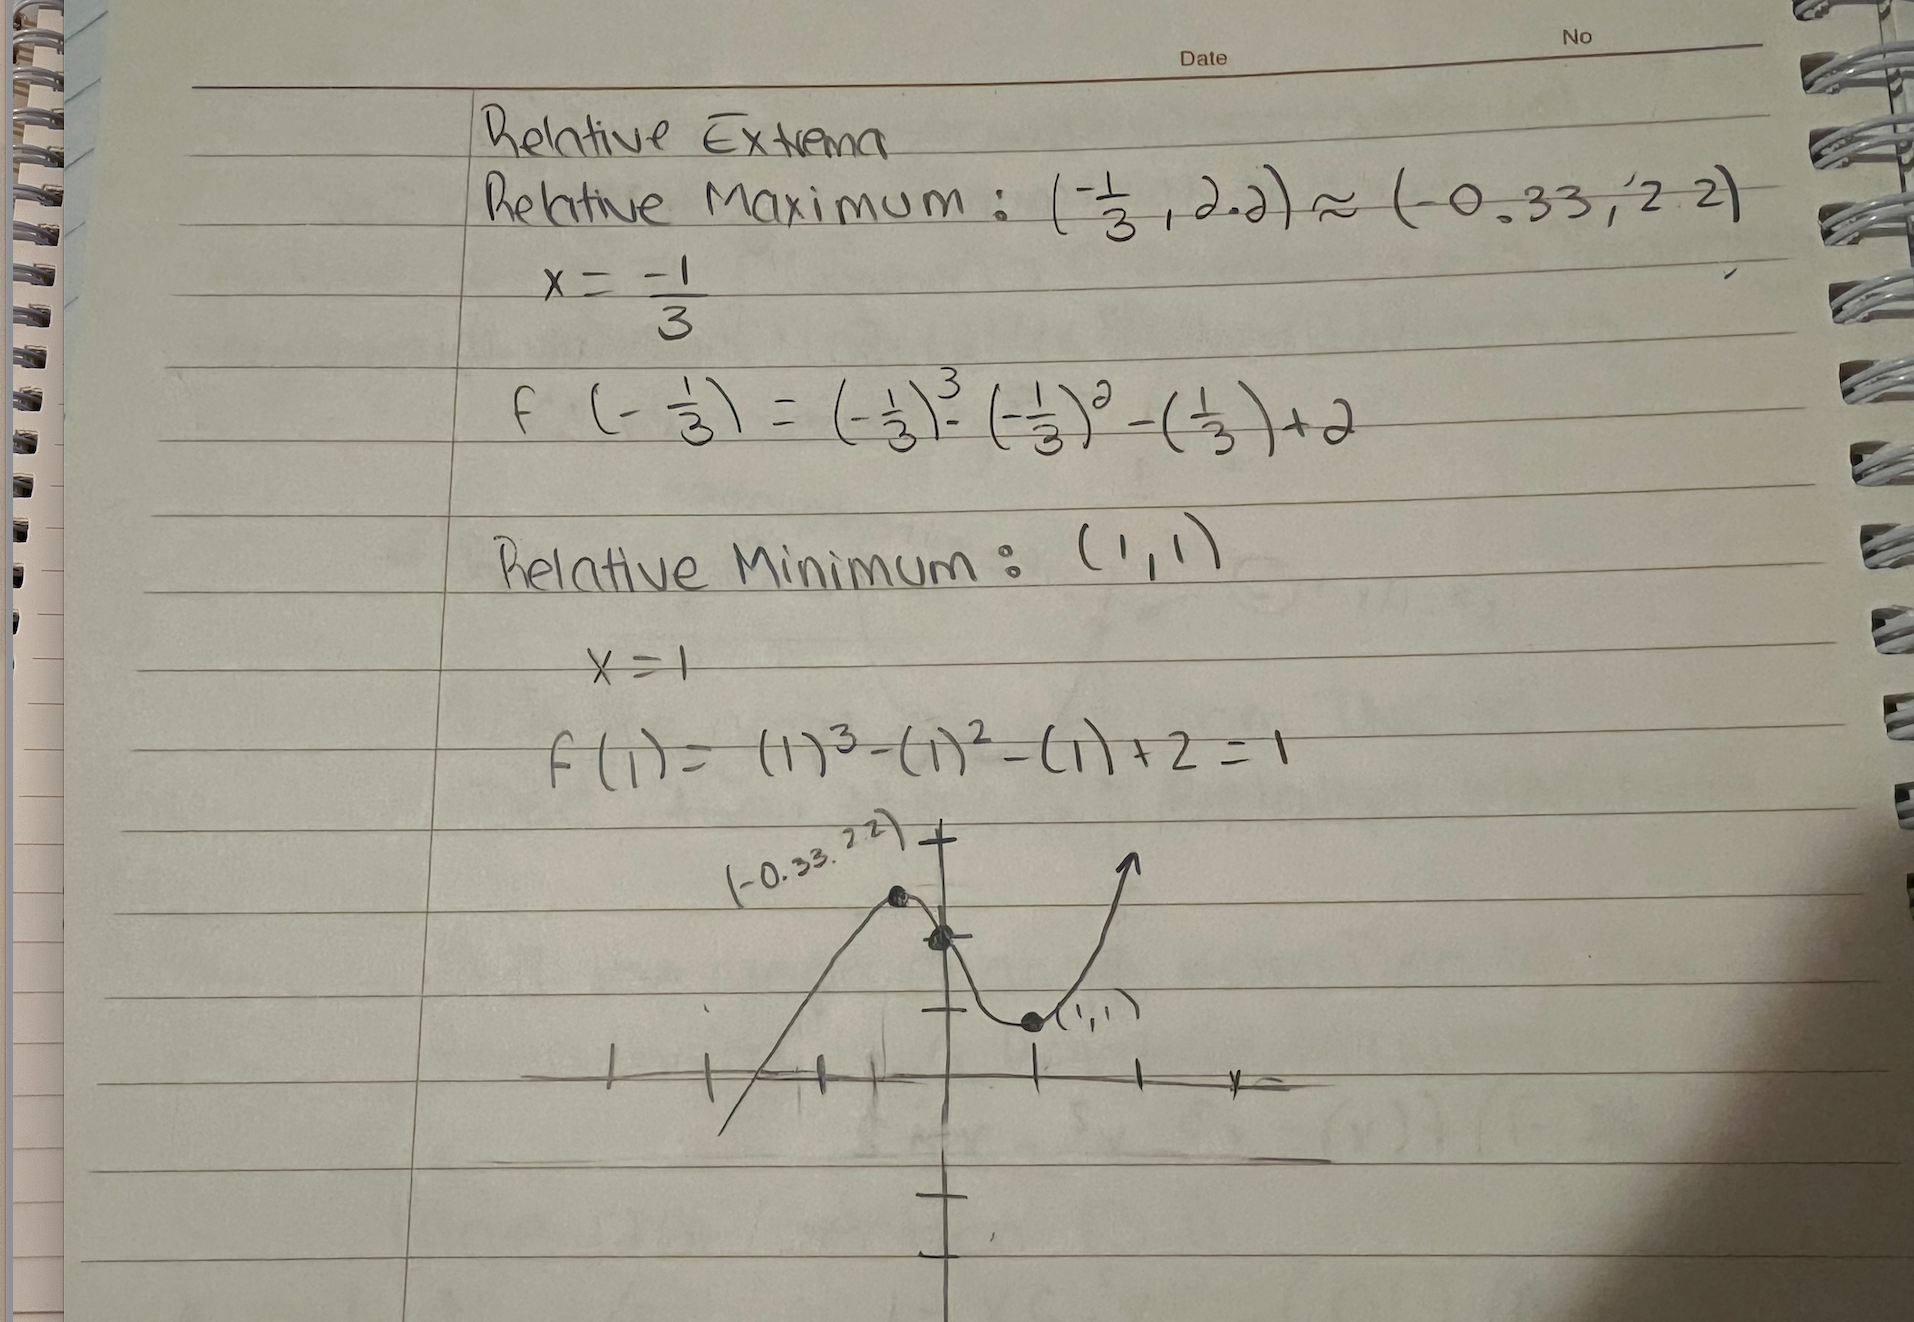 Date
No
Relative Extrema
Relative Maximum : (-1/3, 2.2) ≈ (-0.33, 2.2)
x = -1/3
f (-1/3) = (-1/3)³ - (-1/3)² - (1/3) + 2
Relative Minimum : (1,1)
x = 1
f(1) = (1)³ - (1)² - (1) + 2 = 1
(-0.33, 2.2)
(1,1)